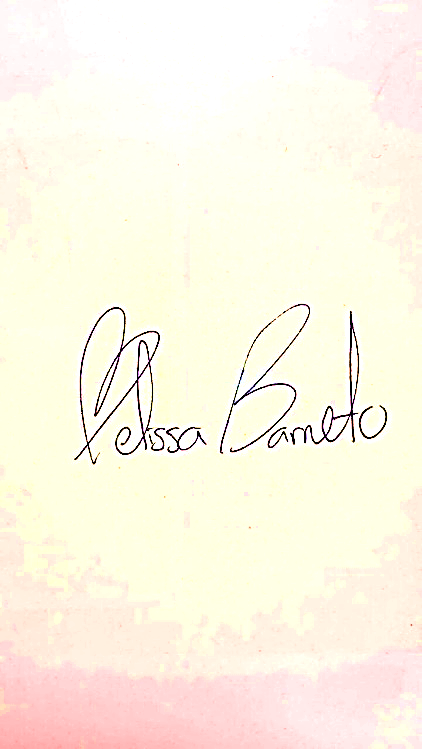 Melissa Barreto